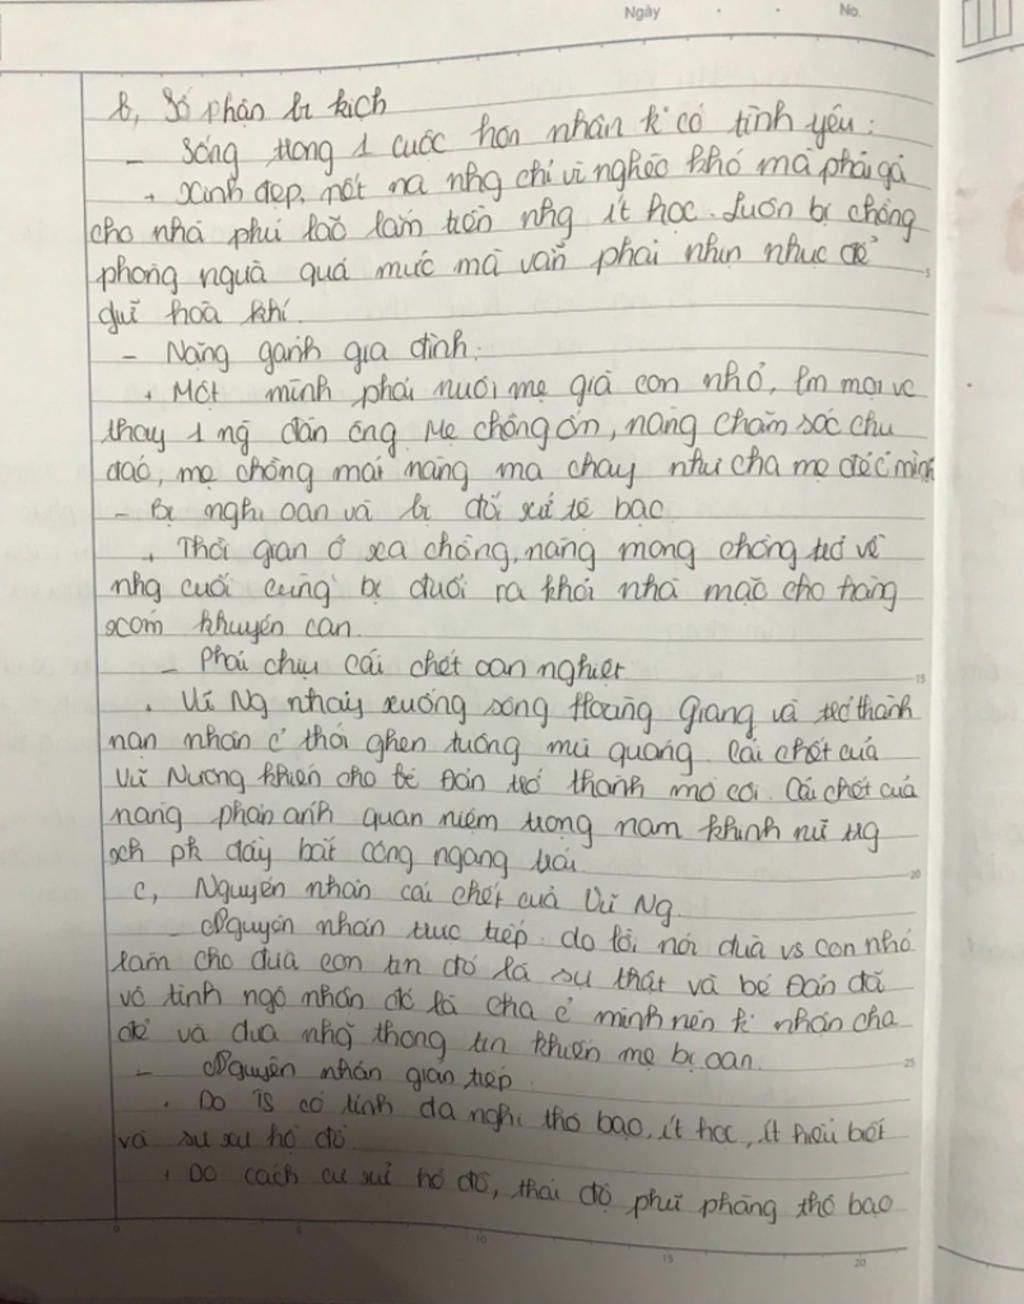 Ngày . . No.
b, Số phận bi kịch
- Sống trong 1 cuộc hôn nhân k có tình yêu:
+ Xinh đẹp, nết na nhg chỉ vì nghèo khó mà phải gả
cho nhà phú hào lắm tiền nhg ít học. Luôn bị chồng
phòng ngừa quá mức mà vẫn phải nhịn nhục để
giữ hoà khí.
- Nặng gánh gia đình:
+ Một mình phải nuôi mẹ già con nhỏ, làm mọi vc
thay 1 ng đàn ông. Mẹ chồng ốm, nàng chăm sóc chu
đáo, mẹ chồng mất nàng ma chay như cha mẹ đẻ c̉ mình
- Bị nghi oan và bị đối xử tệ bạc
+ Thời gian ở xa chồng, nàng mong chồng trở về
nhg cuối cùng bị đuổi ra khỏi nhà mặc cho hàng
xóm khuyên can.
- Phải chịu cái chết oan nghiệt
+ Vũ Ng nhảy xuống sông Hoàng Giang và trở thành
nạn nhân c̉ thói ghen tuông mù quáng. Cái chết của
Vũ Nương khiến cho bé Đản trở thành mồ côi. Cái chết của
nàng phản ánh quan niệm trọng nam khinh nữ trg
xh pk đầy bất công ngang trái.
c, Nguyên nhân cái chết của Vũ Ng.
- Nguyên nhân trực tiếp: do lời nói đùa vs con nhỏ
làm cho đứa con tin đó là sự thật và bé Đản đã
vô tình ngộ nhận đó là cha c̉ mình nên k nhận cha
đẻ và đưa nhg thông tin khiến mẹ bị oan.
- Nguyên nhân gián tiếp:
+ Do TS có tính đa nghi thô bạo, ít học, ít hiểu biết
và sự sư hồ đồ
+ Do cách cư xử hồ đồ, thái độ phũ phàng thô bạo
5
15
20
25
0 5 10 15 20